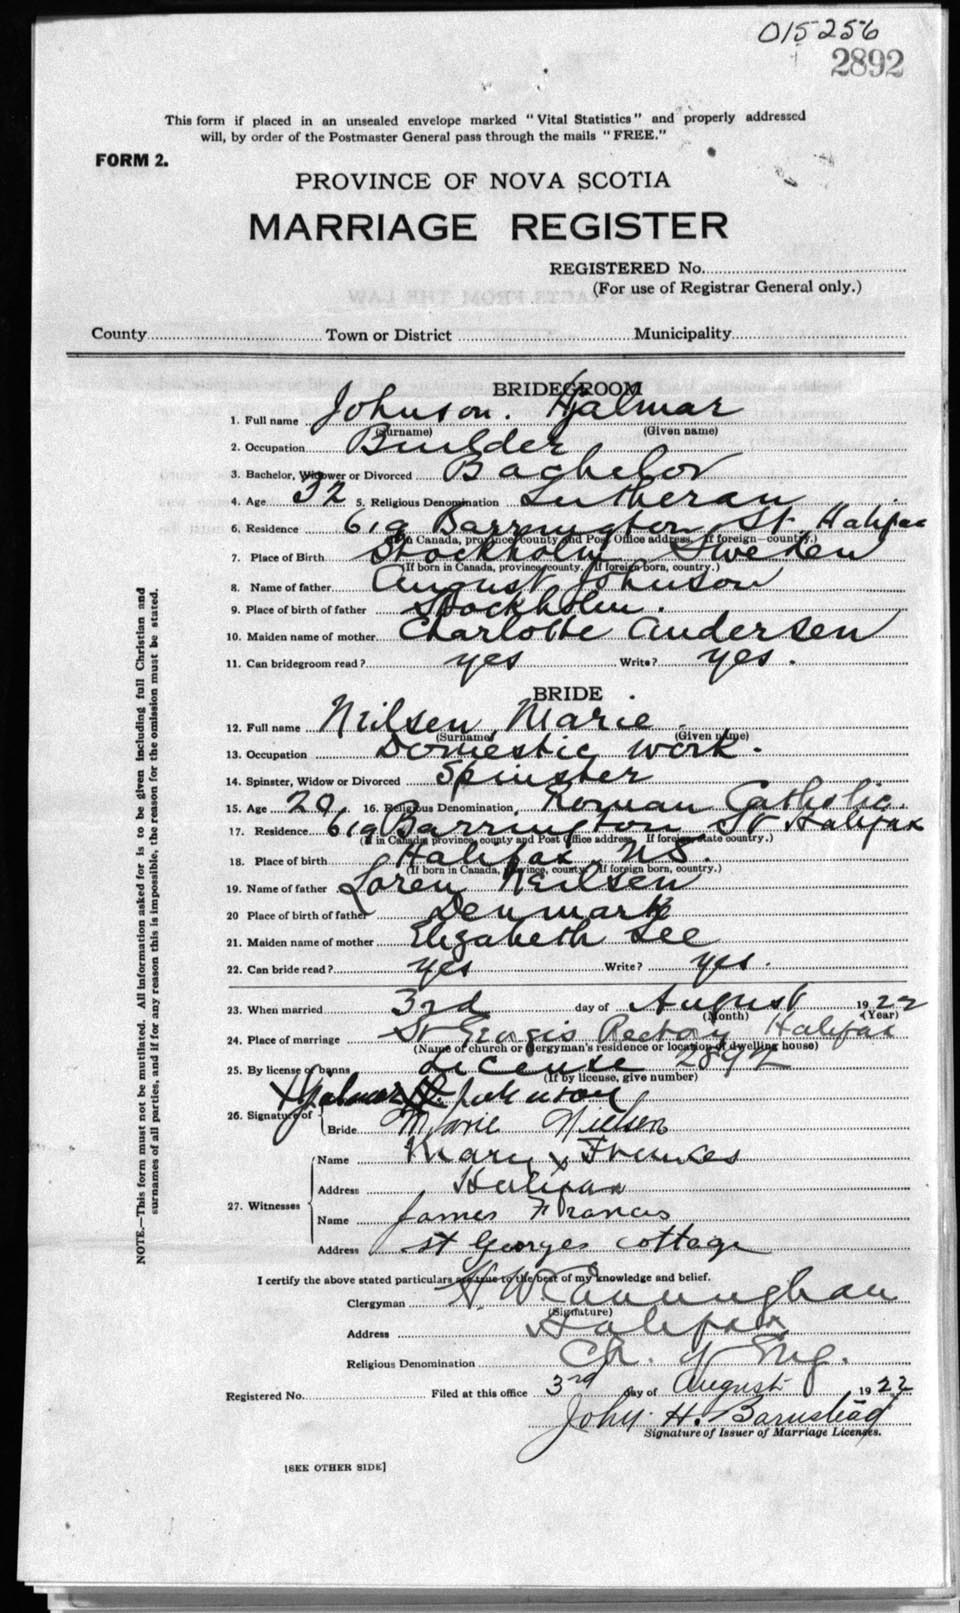 015256
2892
This form if placed in an unsealed envelope marked "Vital Statistics" and properly addressed
will, by order of the Postmaster General pass through the mails "FREE."
FORM 2.
PROVINCE OF NOVA SCOTIA
MARRIAGE REGISTER
REGISTERED No.
(For use of Registrar General only.)
County Town or District Municipality
BRIDEGROOM
1. Full name Johnson. Hjalmar
(Surname) (Given name)
2. Occupation Builder
3. Bachelor, Widower or Divorced Bachelor
4. Age 32 5. Religious Denomination Lutheran
6. Residence 619 Barrington St. Halifax
(If in Canada, province, county and Post Office address. If foreign—country.)
7. Place of Birth Stockholm Sweden
(If born in Canada, province, county. If foreign born, country.)
8. Name of father August Johnson
9. Place of birth of father Stockholm.
10. Maiden name of mother Charlotte Andersen
11. Can bridegroom read? yes Write? yes.
BRIDE
12. Full name Neilsen Marie
(Surname) (Given name)
13. Occupation Domestic work.
14. Spinster, Widow or Divorced Spinster
15. Age 20. 16. Religious Denomination Roman Catholic.
17. Residence 619 Barrington St Halifax
(If in Canada, province, county and Post Office address. If foreign, state country.)
18. Place of birth Halifax N.S.
(If born in Canada, province, county. If foreign born, country.)
19. Name of father Loren Neilsen
20 Place of birth of father Denmark
21. Maiden name of mother Elizabeth Lee
22. Can bride read? yes Write? yes.
23. When married 3rd day of August 1922
(Month) (Year)
24. Place of marriage St Georges Rectory Halifax
(Name of church or clergyman's residence or location of dwelling house)
25. By license or banns License 2892
(If by license, give number)
26. Signature of Hjalmar Johnson
Bride Marie Nielsen
27. Witnesses
Name Mary x Frances
Address Halifax
Name James Francis
Address St Georges cottage
I certify the above stated particulars are true to the best of my knowledge and belief.
Clergyman H W Cunningham
(Signature)
Address Halifax
Religious Denomination Ch. of Eng.
Registered No. Filed at this office 3rd day of August 1922
John H. Barnstead
Signature of Issuer of Marriage Licenses.
[SEE OTHER SIDE]
NOTE.—This form must not be mutilated. All information asked for is to be given including full Christian and
surnames of all parties, and if for any reason this is impossible, the reason for the omission must be stated.